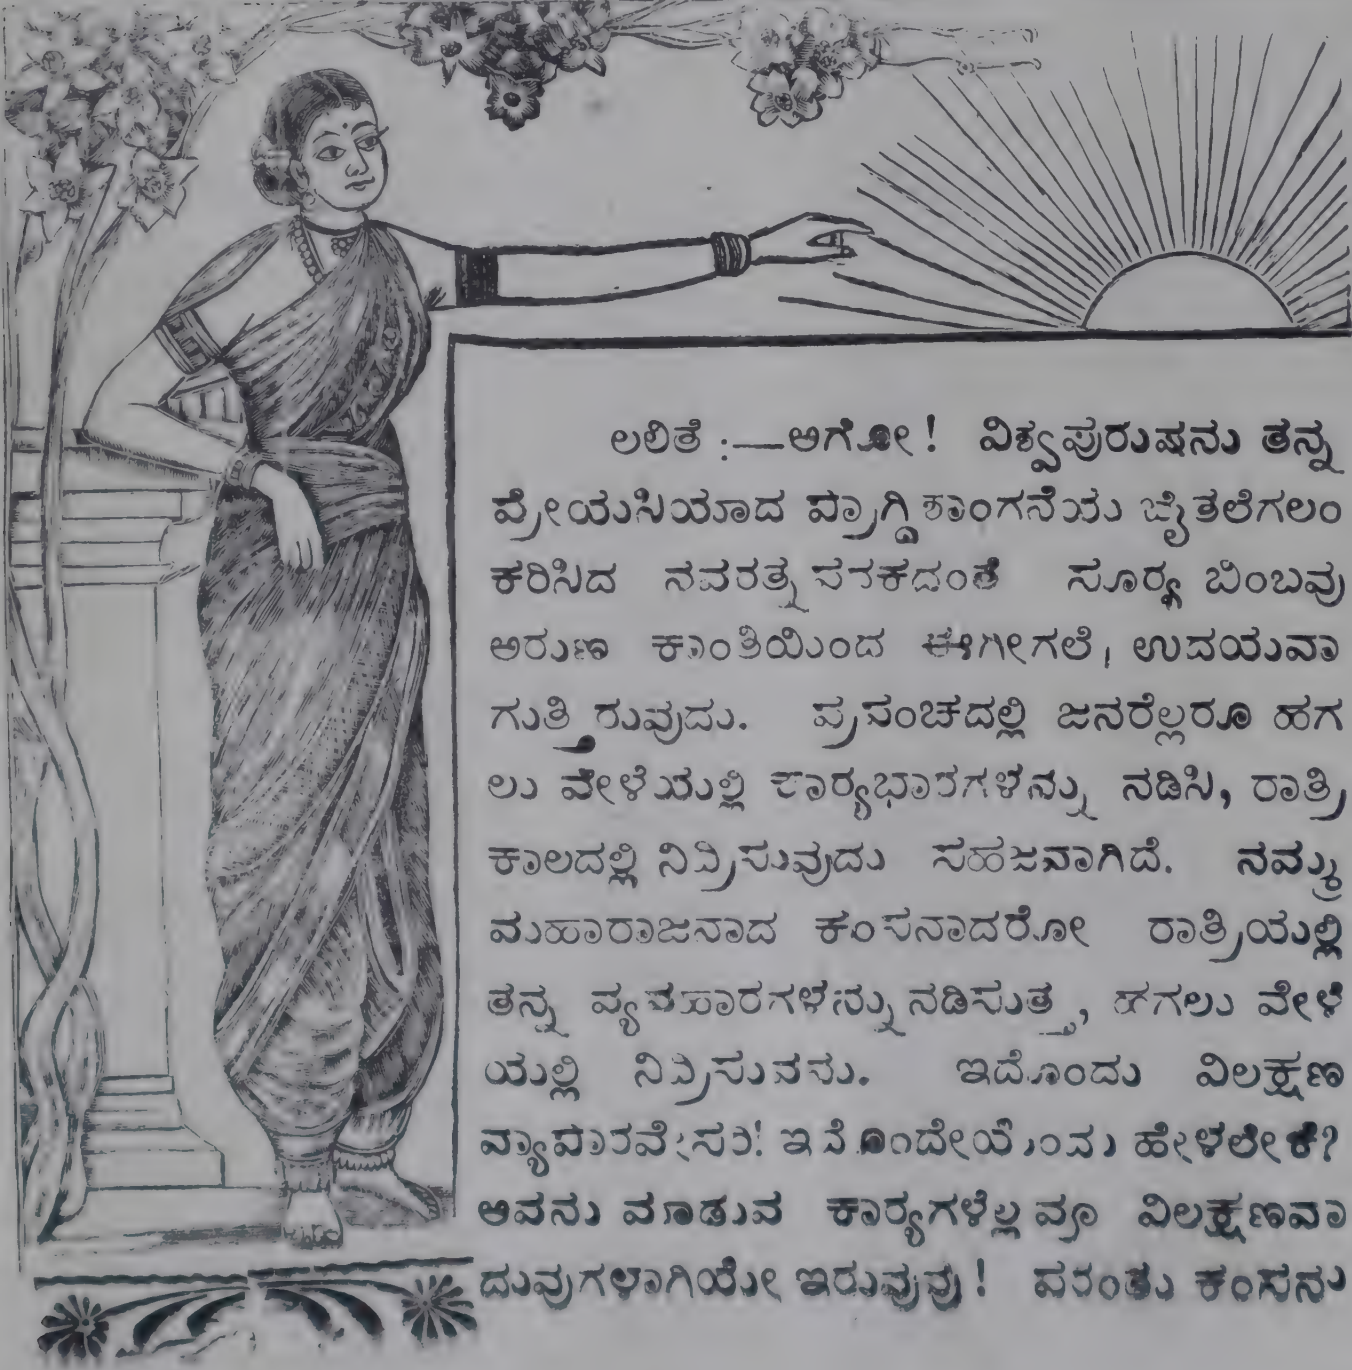 ಲಲಿತೆ :—ಅಗೋ! ವಿಶ್ವಪುರುಷನು ತನ್ನ
ಪ್ರೇಯಸಿಯಾದ ಪ್ರಾಗ್ದಿಶಾಂಗನೆಯ ಜೈತಲೆಗಲಂ
ಕರಿಸಿದ ನವರತ್ನ ಪದಕದಂತೆ ಸೂರ್‍ಯ ಬಿಂಬವು
ಅರುಣ ಕಾಂತಿಯಿಂದ ಈಗೀಗಲೆ, ಉದಯವಾ
ಗುತ್ತಿರುವುದು. ಪ್ರಪಂಚದಲ್ಲಿ ಜನರೆಲ್ಲರೂ ಹಗ
ಲು ವೇಳೆಯಲ್ಲಿ ಕಾರ್‍ಯಭಾರಗಳನ್ನು ನಡಿಸಿ, ರಾತ್ರಿ
ಕಾಲದಲ್ಲಿ ನಿದ್ರಿಸುವುದು ಸಹಜವಾಗಿದೆ. ನಮ್ಮ
ಮಹಾರಾಜನಾದ ಕಂಸನಾದರೋ ರಾತ್ರಿಯಲ್ಲಿ
ತನ್ನ ವ್ಯವಹಾರಗಳನ್ನು ನಡಿಸುತ್ತ, ಹಗಲು ವೇಳೆ
ಯಲ್ಲಿ ನಿದ್ರಿಸುವನು. ಇದೊಂದು ವಿಲಕ್ಷಣ
ವ್ಯಾಪಾರವೇಸರಿ! ಇದೊಂದೇಯೆಂದು ಹೇಳಲೇಕೆ?
ಅವನು ಮಾಡುವ ಕಾರ್‍ಯಗಳೆಲ್ಲವೂ ವಿಲಕ್ಷಣವಾ
ದುವುಗಳಾಗಿಯೇ ಇರುವುವು! ಪರಂತು ಕಂಸನು